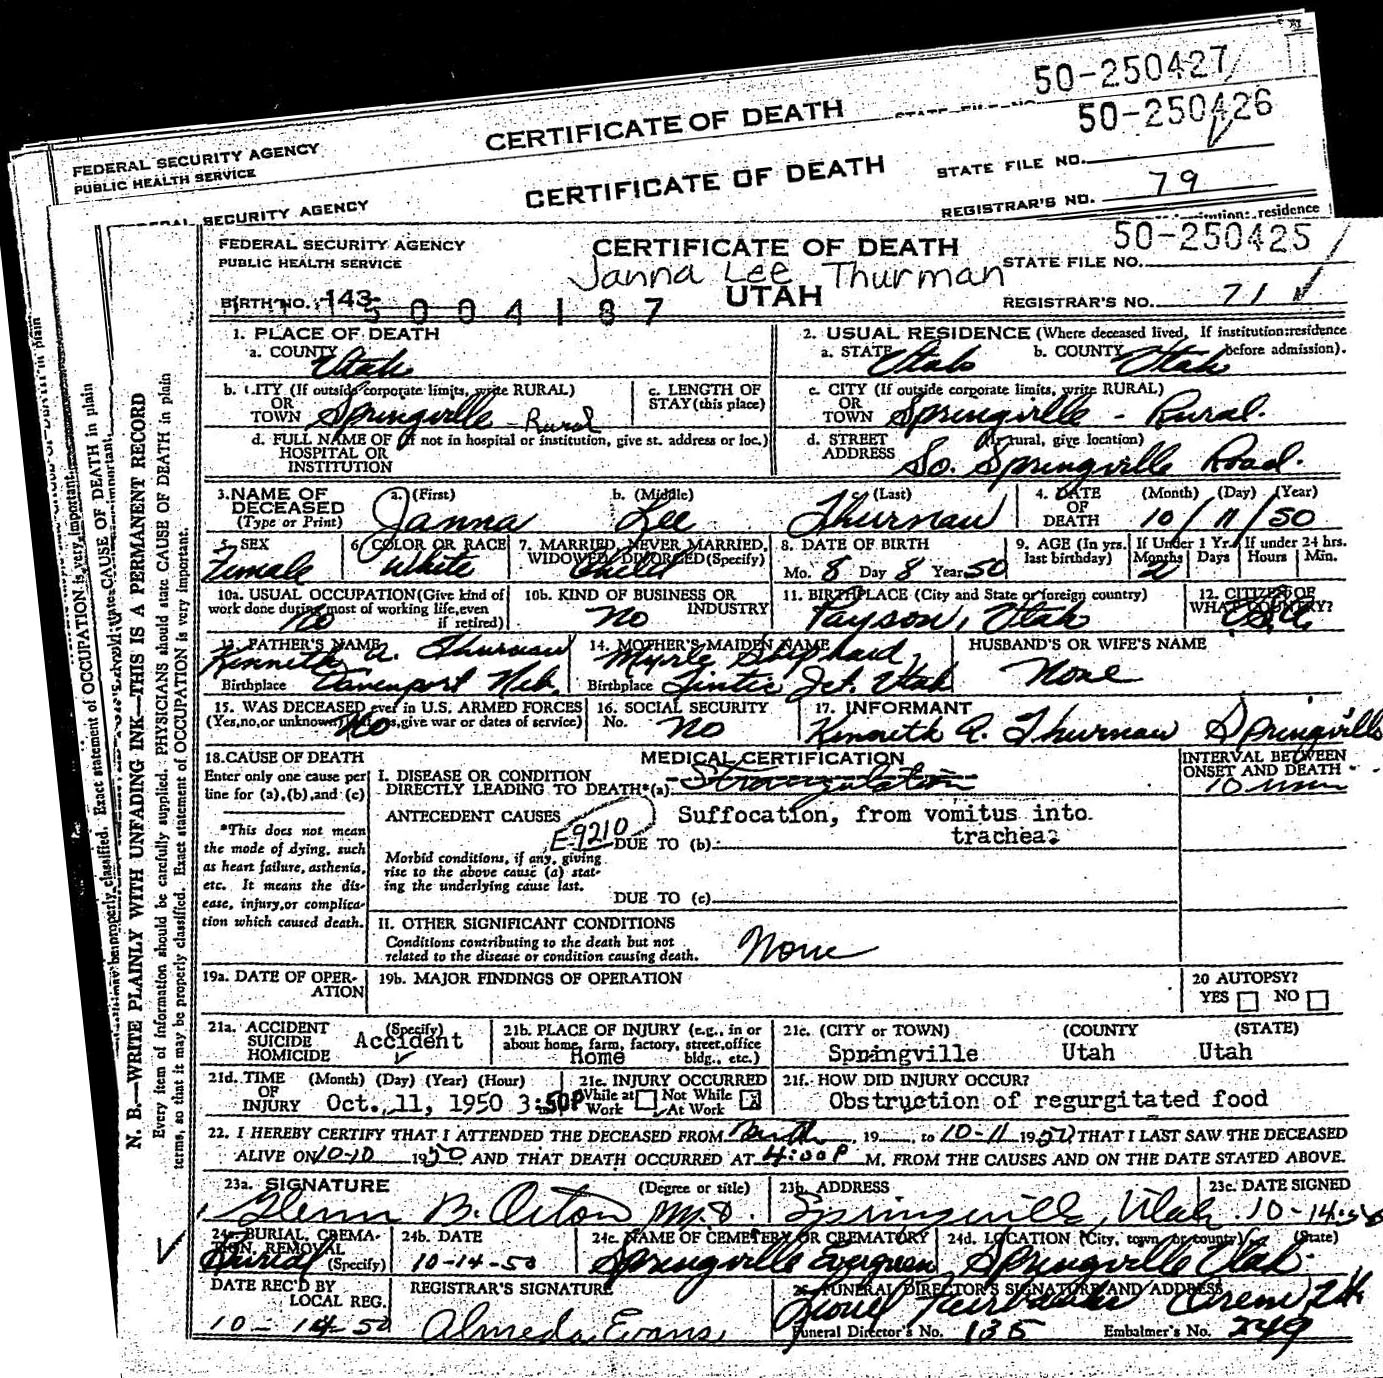 50-250427
CERTIFICATE OF DEATH
50-250426
FEDERAL SECURITY AGENCY
PUBLIC HEALTH SERVICE
CERTIFICATE OF DEATH
STATE FILE NO.
REGISTRAR'S NO. 79
SECURITY AGENCY
residence
FEDERAL SECURITY AGENCY
PUBLIC HEALTH SERVICE
CERTIFICATE OF DEATH
50-250425
STATE FILE NO.
Janna Lee Thurman
UTAH
BIRTH NO. 143-
004187
REGISTRAR'S NO. 71
1. PLACE OF DEATH
a. COUNTY Utah
2. USUAL RESIDENCE (Where deceased lived, If institution:residence before admission).
a. STATE Utah b. COUNTY Utah
b. CITY (If outside corporate limits, write RURAL) OR TOWN Springville - Rural
c. LENGTH OF STAY (this place)
c. CITY (If outside corporate limits, write RURAL) OR TOWN Springville - Rural.
d. FULL NAME OF (If not in hospital or institution, give st. address or loc.) HOSPITAL OR INSTITUTION
d. STREET ADDRESS (If rural, give location) So. Springville Road.
3. NAME OF DECEASED (Type or Print) a. (First) Janna b. (Middle) Lee c. (Last) Thurman
4. DATE OF DEATH (Month) (Day) (Year) 10/11/50
5. SEX Female
6. COLOR OR RACE White
7. MARRIED, NEVER MARRIED, WIDOWED, DIVORCED (Specify) Child
8. DATE OF BIRTH Mo. 8 Day 8 Year 50
9. AGE (In yrs. last birthday) If Under 1 Yr. Months 2 Days If under 24 hrs. Hours Min.
10a. USUAL OCCUPATION (Give kind of work done during most of working life, even if retired) No
10b. KIND OF BUSINESS OR INDUSTRY No
11. BIRTHPLACE (City and State or foreign country) Payson, Utah
12. CITIZEN OF WHAT COUNTRY? USA
13. FATHER'S NAME Kenneth A. Thurman
Birthplace Davenport Neb.
14. MOTHER'S MAIDEN NAME Myrle Shephard
Birthplace Tintic Jct. Utah
HUSBAND'S OR WIFE'S NAME None
15. WAS DECEASED ever in U.S. ARMED FORCES (Yes, no, or unknown) (If yes, give war or dates of service) No
16. SOCIAL SECURITY No. No
17. INFORMANT Kenneth A. Thurman Springville
18. CAUSE OF DEATH
Enter only one cause per line for (a), (b), and (c)
*This does not mean the mode of dying, such as heart failure, asthenia, etc. It means the disease, injury, or complication which caused death.
MEDICAL CERTIFICATION
I. DISEASE OR CONDITION DIRECTLY LEADING TO DEATH*(a) Strangulation
INTERVAL BETWEEN ONSET AND DEATH
10 min
ANTECEDENT CAUSES Suffocation, from vomitus into trachea.
E9210
DUE TO (b)
Morbid conditions, if any, giving rise to the above cause (a) stating the underlying cause last.
DUE TO (c)
II. OTHER SIGNIFICANT CONDITIONS
Conditions contributing to the death but not related to the disease or condition causing death. None
19a. DATE OF OPERATION
19b. MAJOR FINDINGS OF OPERATION
20 AUTOPSY? YES NO
21a. ACCIDENT SUICIDE HOMICIDE (Specify) Accident
21b. PLACE OF INJURY (e.g., in or about home, farm, factory, street, office bldg., etc.) Home
21c. (CITY or TOWN) (COUNTY (STATE)
Springville Utah Utah
21d. TIME OF INJURY (Month) (Day) (Year) (Hour) Oct. 11, 1950 3:50P
21e. INJURY OCCURRED While at Work Not While At Work x
21f. HOW DID INJURY OCCUR?
Obstruction of regurgitated food
22. I HEREBY CERTIFY THAT I ATTENDED THE DECEASED FROM Birth, 19 to 10-11 1950 THAT I LAST SAW THE DECEASED
ALIVE ON 10-10 1950 AND THAT DEATH OCCURRED AT 4:00P M. FROM THE CAUSES AND ON THE DATE STATED ABOVE.
23a. SIGNATURE (Degree or title) Glenn B. Orton M.D.
23b. ADDRESS Springville, Utah
23c. DATE SIGNED 10-14-50
24a. BURIAL, CREMATION, REMOVAL (Specify) Burial
24b. DATE 10-14-50
24c. NAME OF CEMETERY OR CREMATORY Springville Evergreen
24d. LOCATION (City, town or county) (State) Springville Utah
DATE REC'D BY LOCAL REG. 10-14-50
REGISTRAR'S SIGNATURE Almeda Evans
25. FUNERAL DIRECTOR'S SIGNATURE AND ADDRESS Orem
Funeral Director's No. 135 Embalmer's No. 249
N. B.—WRITE PLAINLY WITH UNFADING INK—THIS IS A PERMANENT RECORD
Every item of information should be carefully supplied. PHYSICIANS should state CAUSE OF DEATH in plain
terms, so that it may be properly classified. Exact statement of OCCUPATION is very important.